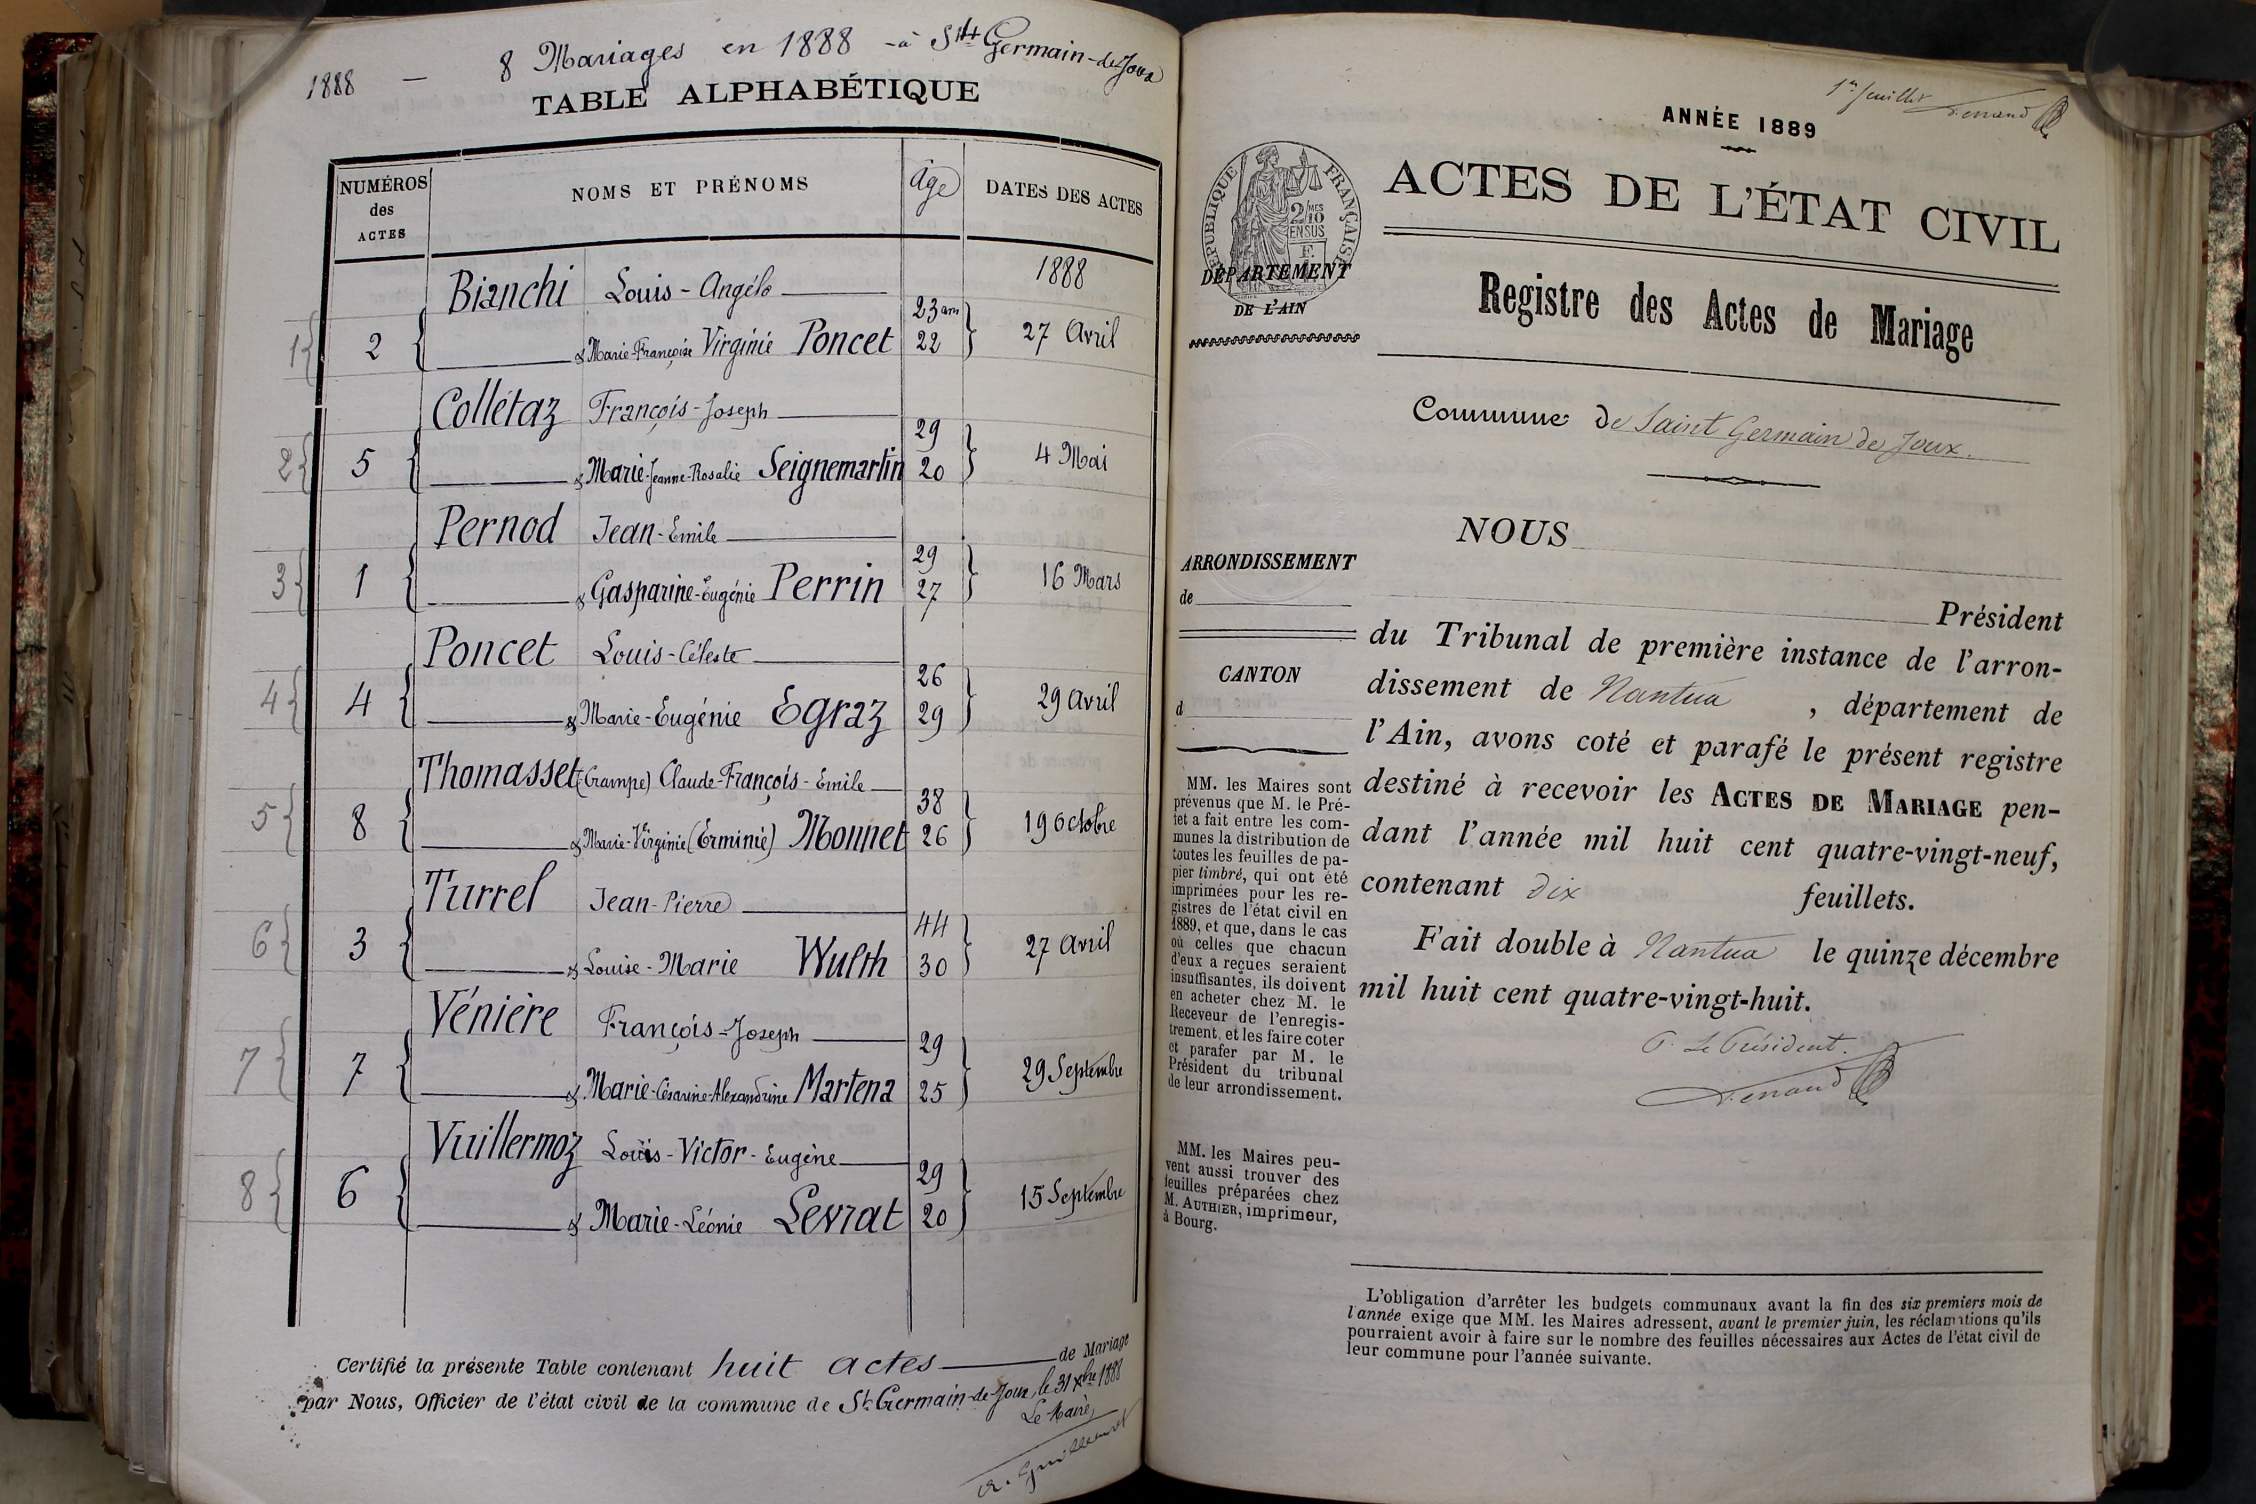 1888 — 8 Mariages en 1888 - à St Germain-de-Joux
TABLE ALPHABÉTIQUE
NUMÉROS des ACTES
NOMS ET PRÉNOMS
Age
DATES DES ACTES
1888
Bianchi Louis-Angélo
1 2 & Marie-Françoise Virginie Poncet 23 ans 22 27 Avril
Collétaz François-Joseph
2 5 & Marie-Jeanne-Rosalie Seignemartin 29 20 4 Mai
Pernod Jean-Emile
3 1 & Gasparine-Eugénie Perrin 29 27 16 Mars
Poncet Louis-Céleste
4 4 & Marie-Eugénie Egraz 26 29 29 Avril
Thomasset (Grampe) Claude-François-Emile
5 8 & Marie-Virginie (Erminie) Monnet 38 26 19 Octobre
Turrel Jean-Pierre
6 3 & Louise-Marie Wulth 44 30 27 Avril
Vénière François-Joseph
7 7 & Marie-Césarine-Alexandrine Martena 29 25 29 Septembre
Vuillermoz Louis-Victor-Eugène
8 6 & Marie-Léonie Levrat 29 20 15 Septembre
Certifié la présente Table contenant huit actes de Mariage
par Nous, Officier de l'état civil de la commune de St Germain-de-Joux, le 31 Xbre 1888
Le Maire,
1er feuillet
ANNÉE 1889
ACTES DE L'ÉTAT CIVIL
RÉPUBLIQUE FRANÇAISE
2/10 MES
EN SUS
DÉPARTEMENT
DE L'AIN
Registre des Actes de Mariage
Commune de Saint Germain de Joux.
ARRONDISSEMENT
de
CANTON
d
NOUS
Président
du Tribunal de première instance de l'arron-
dissement de Nantua , département de
l'Ain, avons coté et parafé le présent registre
destiné à recevoir les ACTES DE MARIAGE pen-
dant l'année mil huit cent quatre-vingt-neuf,
contenant dix feuillets.
Fait double à Nantua le quinze décembre
mil huit cent quatre-vingt-huit.
P. Le Président.
MM. les Maires sont
prévenus que M. le Pré-
fet a fait entre les com-
munes la distribution de
toutes les feuilles de pa-
pier timbré, qui ont été
imprimées pour les re-
gistres de l'état civil en
1889, et que, dans le cas
où celles que chacun
d'eux a reçues seraient
insuffisantes, ils doivent
en acheter chez M. le
Receveur de l'enregis-
trement, et les faire coter
et parafer par M. le
Président du tribunal
de leur arrondissement.
MM. les Maires peu-
vent aussi trouver des
feuilles préparées chez
M. AUTHIER, imprimeur,
à Bourg.
L'obligation d'arrêter les budgets communaux avant la fin des six premiers mois de
l'année exige que MM. les Maires adressent, avant le premier juin, les réclamations qu'ils
pourraient avoir à faire sur le nombre des feuilles nécessaires aux Actes de l'état civil de
leur commune pour l'année suivante.